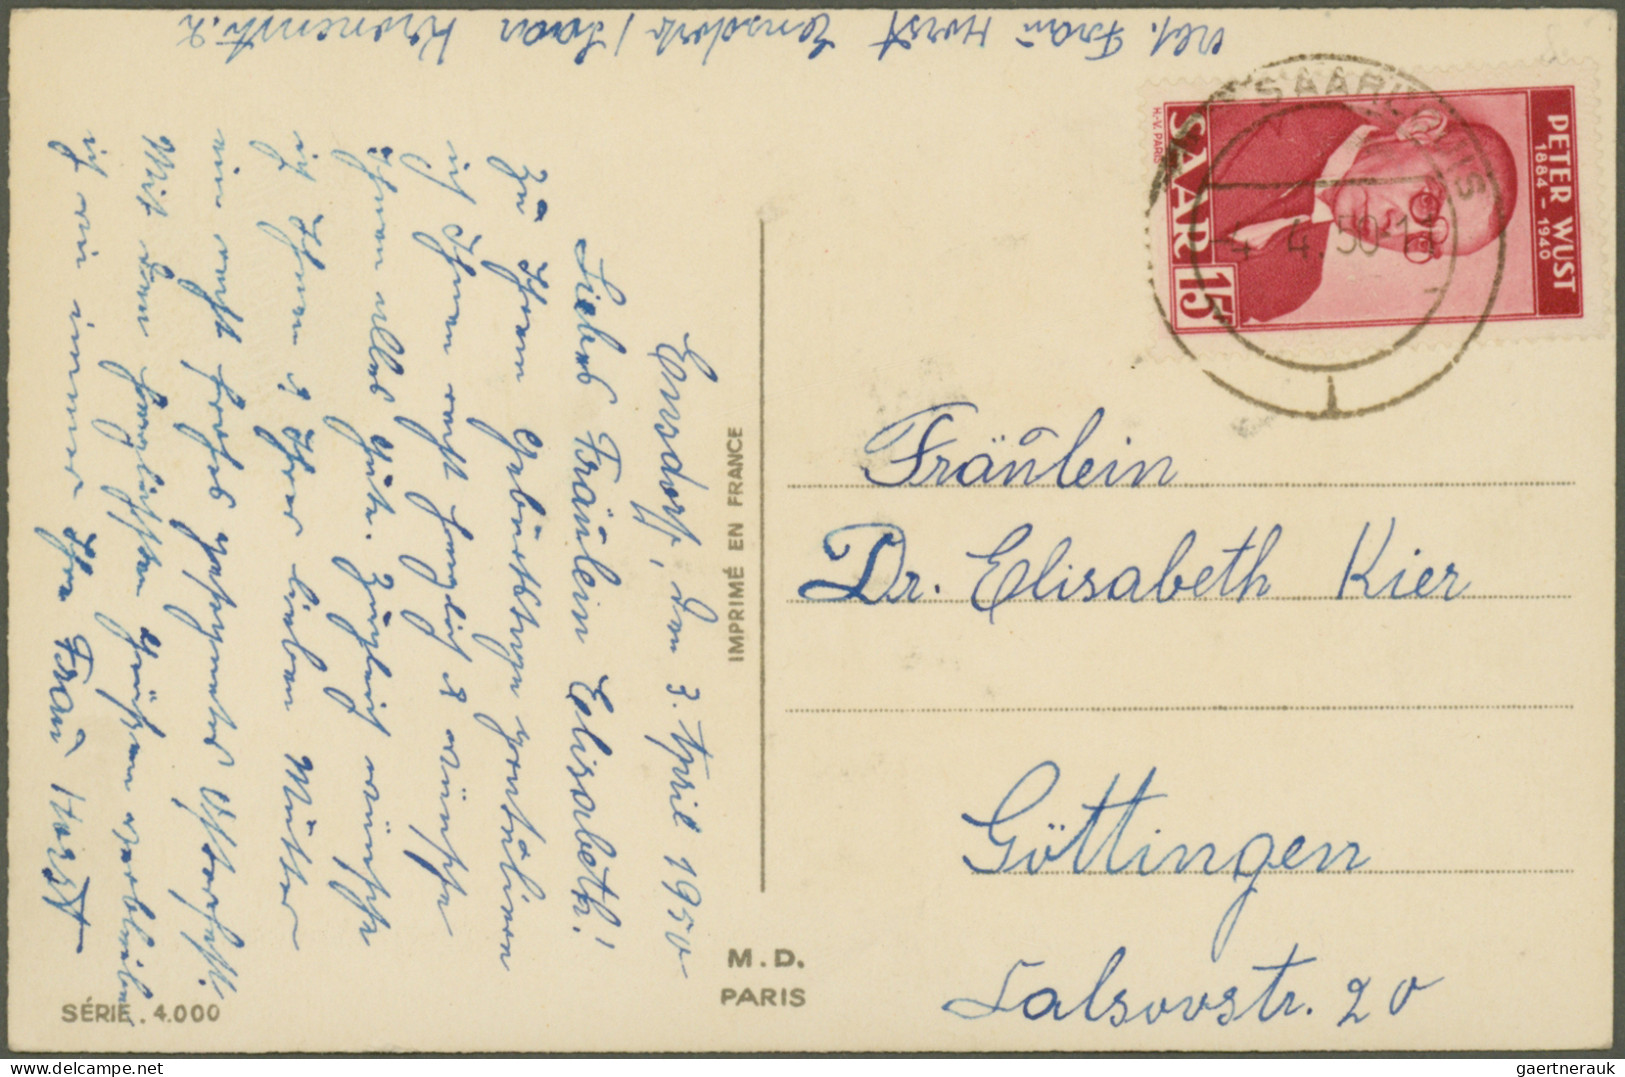 Abs. Frau Horst Ensdorf / Saar Kronenstr. 2
Ensdorf, den 3. April 1950
Liebes Fräulein Elisabeth!
Zu Ihrem Geburtstage gratulieren
ich Ihnen recht herzlich & wünsche
Ihnen alles Gute. Zugleich wünsche
ich Ihnen & Ihrer lieben Mutter
ein recht frohes gesegnetes Osterfest.
Mit den herzlichsten Grüßen verbleibe
ich wie immer Ihre Frau Horst
SÉRIE. 4.000
IMPRIMÉ EN FRANCE
M.D.
PARIS
PETER WUST
1884-1940
SAAR 15F
H-V. PARIS
SAARLOUIS
-4. 4. 50-11
Fräulein
Dr. Elisabeth Kier
Göttingen
Calsovstr. 20
gaertnerauk